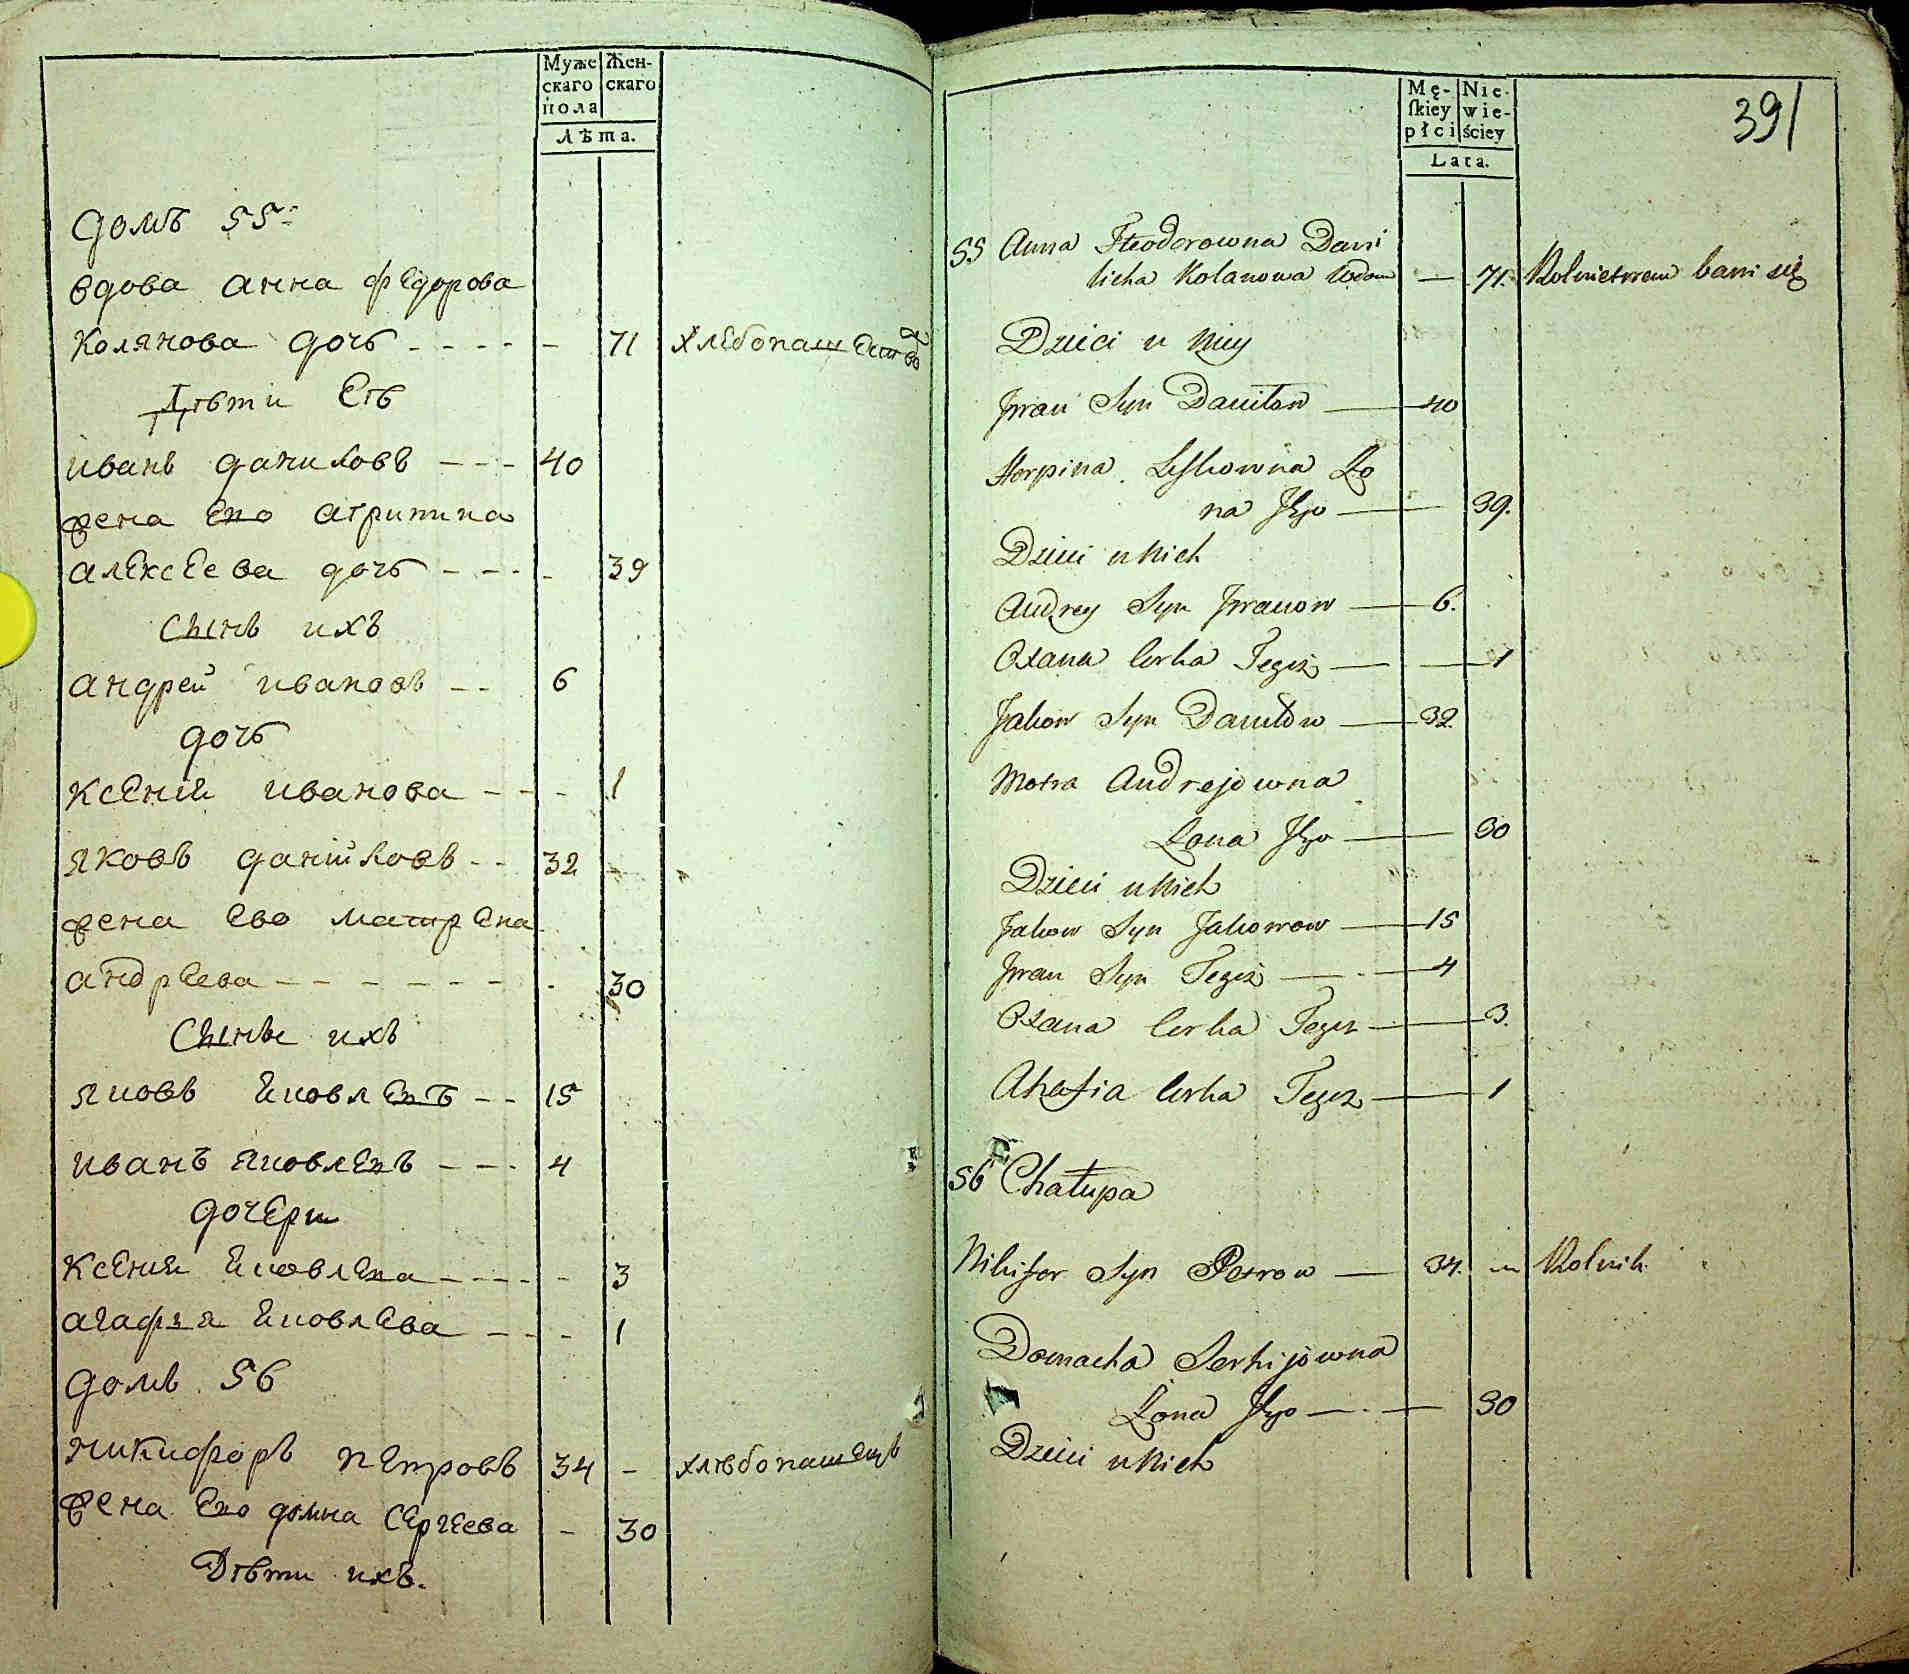 Муже
скаго
пола
Жен-
скаго
Лѣта.
домъ 55:
вдова анна федорова
Колянова дочь - - - - - 71 хлебопашество
Дѣти Еѣ
иванъ даниловъ - - - 40
жена Его агрипина
алексеева дочь - - - - 39
Сынъ ихъ
андрей ивановъ - - 6
дочь
Ксения иванова - - - 1
яковъ даниловъ - - 32
жена Ево матрена
андреева - - - - - - - 30
Сыны ихъ
яковъ яковлевъ - - 15
иванъ яковлевъ - - - 4
дочери
Ксения яковлева - - - - - 3
агафья яковлева - - - 1
домъ 56
никифоръ петровъ 34 - хлѣбопашецъ
жена Его домна сергеева - 30
Дѣти ихъ.
Mę-
skiey
płci
Nie-
wie-
ściey
Lata.
391
55 Anna Fteodorowna Dani
licha Kolanowa wdowa — 71. Rolnictwem bawi się
Dzieci u Niey
Jwan Syn Daniłow — 40
Horpina Leskowna Żo
na Jego — 39.
Dzieci u Nich
Andrey Syn Jwanow — 6.
Oxana Corka Tegoż — — 1
Jakow Syn Daniłow — 32.
Motra Andrejowna
Żona Jego — 30
Dzieci u Nich
Jakow Syn Jakowow — 15
Jwan Syn Tegoż — 4
Oxana Corka Tegoż — 3.
Ahafia Corka Tegoż — 1
56 Chałupa
Nikifor Syn Petrow — 34. — Rolnik
Domacha Serhijowna
Żona Jego — — 30
Dzieci u Nich